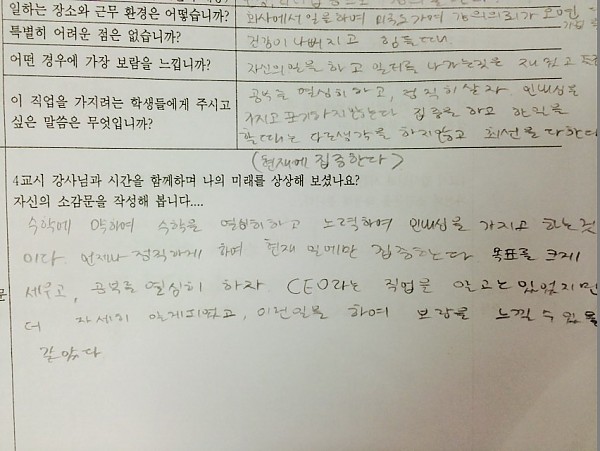 일하는 장소와 근무 환경은 어떻습니까?
회사에서 일을 하며
특별히 어려운 점은 없습니까?
건강이 나빠지고 힘들 때
어떤 경우에 가장 보람을 느낍니까?
자신의 일을 하고
이 직업을 가지려는 학생들에게 주시고
싶은 말씀은 무엇입니까?
공부를 열심히 하고, 정직히 살자. 인내심을
가지고 포기하지 않는다 집중을 하고 한 일을
할 때는 다른생각을 하지않고 최선를 다한다
(현재에 집중한다)
4교시 강사님과 시간을 함께하며 나의 미래를 상상해 보셨나요?
자신의 소감문을 작성해 봅니다....
수학에 약하여 수학을 열심히하고 노력하여 인내심을 가지고 하는것
이다. 언제나 정직하게 하며 현재 일에만 집중한다 목표를 크게
세우고, 공부를 열심히 하자 CEO라는 직업을 알고는 있었지만
더 자세히 알게되었고, 이런일을 하여 보람를 느낄수 있을
같았다
문